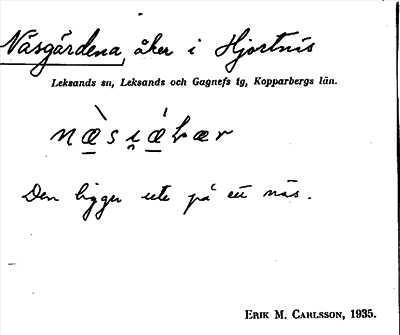 Näsgårdena, åker i Hjortnäs
Leksands sn, Leksands och Gagnefs tg, Kopparbergs län.
Den ligger ute på ett näs.
ERIK M. CARLSSON, 1935.